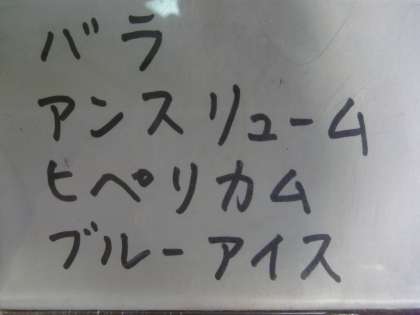 バラ
アンスリューム
ヒペリカム
ブルーアイス